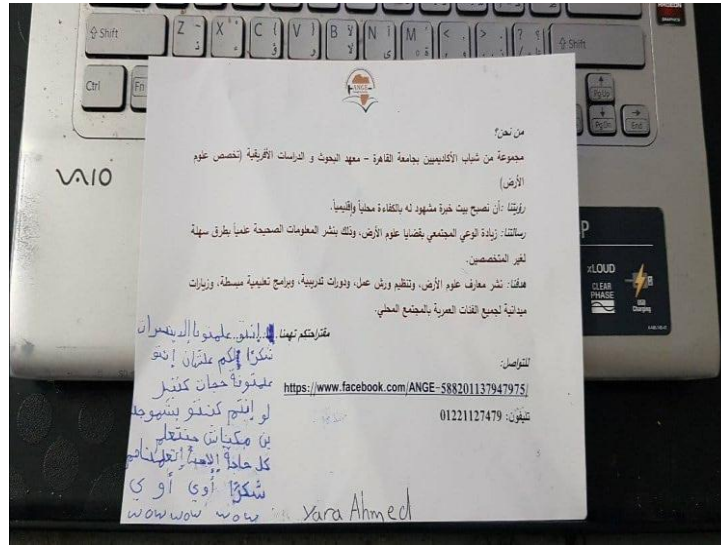 Shift
Z
X
C
V
B
N
M
Shift
Ctrl
Fn
PgUp
PgDn
End
VAIO
RADEON
xLOUD
CLEAR PHASE
USB Charging
ANGE
من نحن؟
مجموعة من شباب الأكاديميين بجامعة القاهرة - معهد البحوث و الدراسات الأفريقية (تخصص علوم
الأرض)
رؤيتنا: أن نصبح بيت خبرة مشهود له بالكفاءة محلياً وإقليمياً.
رسالتنا: زيادة الوعي المجتمعي بقضايا علوم الأرض، وذلك بنشر المعلومات الصحيحة علمياً بطرق سهلة
لغير المتخصصين.
هدفنا: نشر معارف علوم الأرض، وتنظيم ورش عمل، ودورات تدريبية، وبرامج تعليمية مبسطة، وزيارات
ميدانية لجميع الفئات العمرية بالمجتمع المحلي.
مقترحتكم تهمنا
إنتو علمتونا
شكرًا لكم علشان إنتو
علمتونة حجات كتتير
لو إنتم كنتو
كل حاجة
شكرًا أوي أوي
wow wow wow
للتواصل:
https://www.facebook.com/ANGE-588201137947975/
تليفون: 01221127479
Yara Ahmed